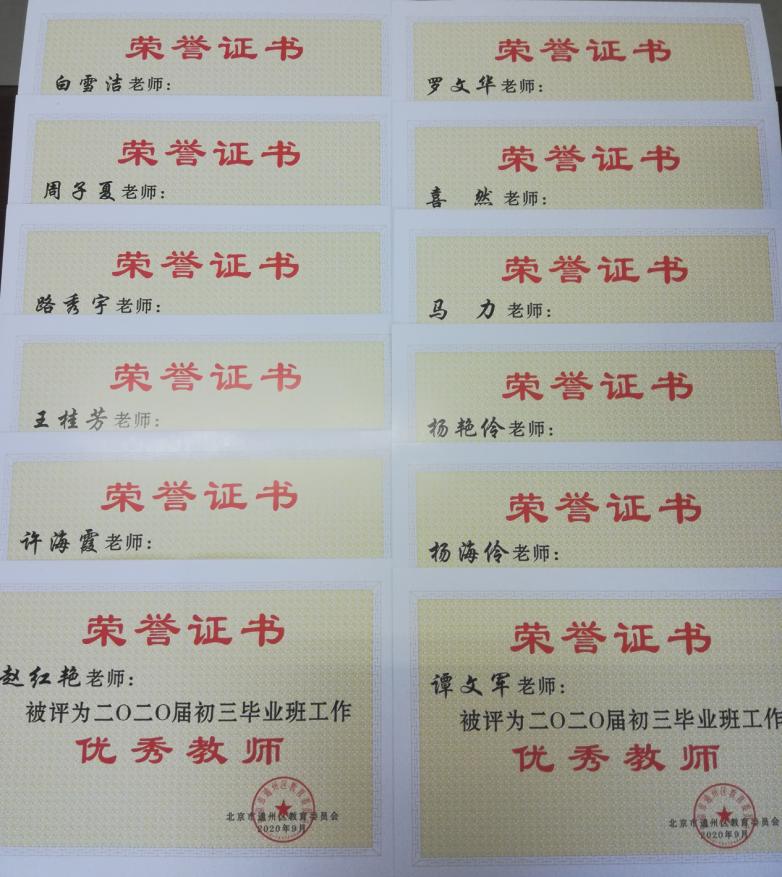 荣誉证书
白雪洁老师：
荣誉证书
周子夏老师：
荣誉证书
路秀宇老师：
荣誉证书
王桂芳老师：
荣誉证书
许海霞老师：
荣誉证书
赵红艳老师：
被评为二〇二〇届初三毕业班工作
优秀教师
北京市通州区教育委员会
2020年9月
荣誉证书
罗文华老师：
荣誉证书
喜 然老师：
荣誉证书
马 力老师：
荣誉证书
杨艳伶老师：
荣誉证书
杨海伶老师：
荣誉证书
谭文军老师：
被评为二〇二〇届初三毕业班工作
优秀教师
北京市通州区教育委员会
2020年9月